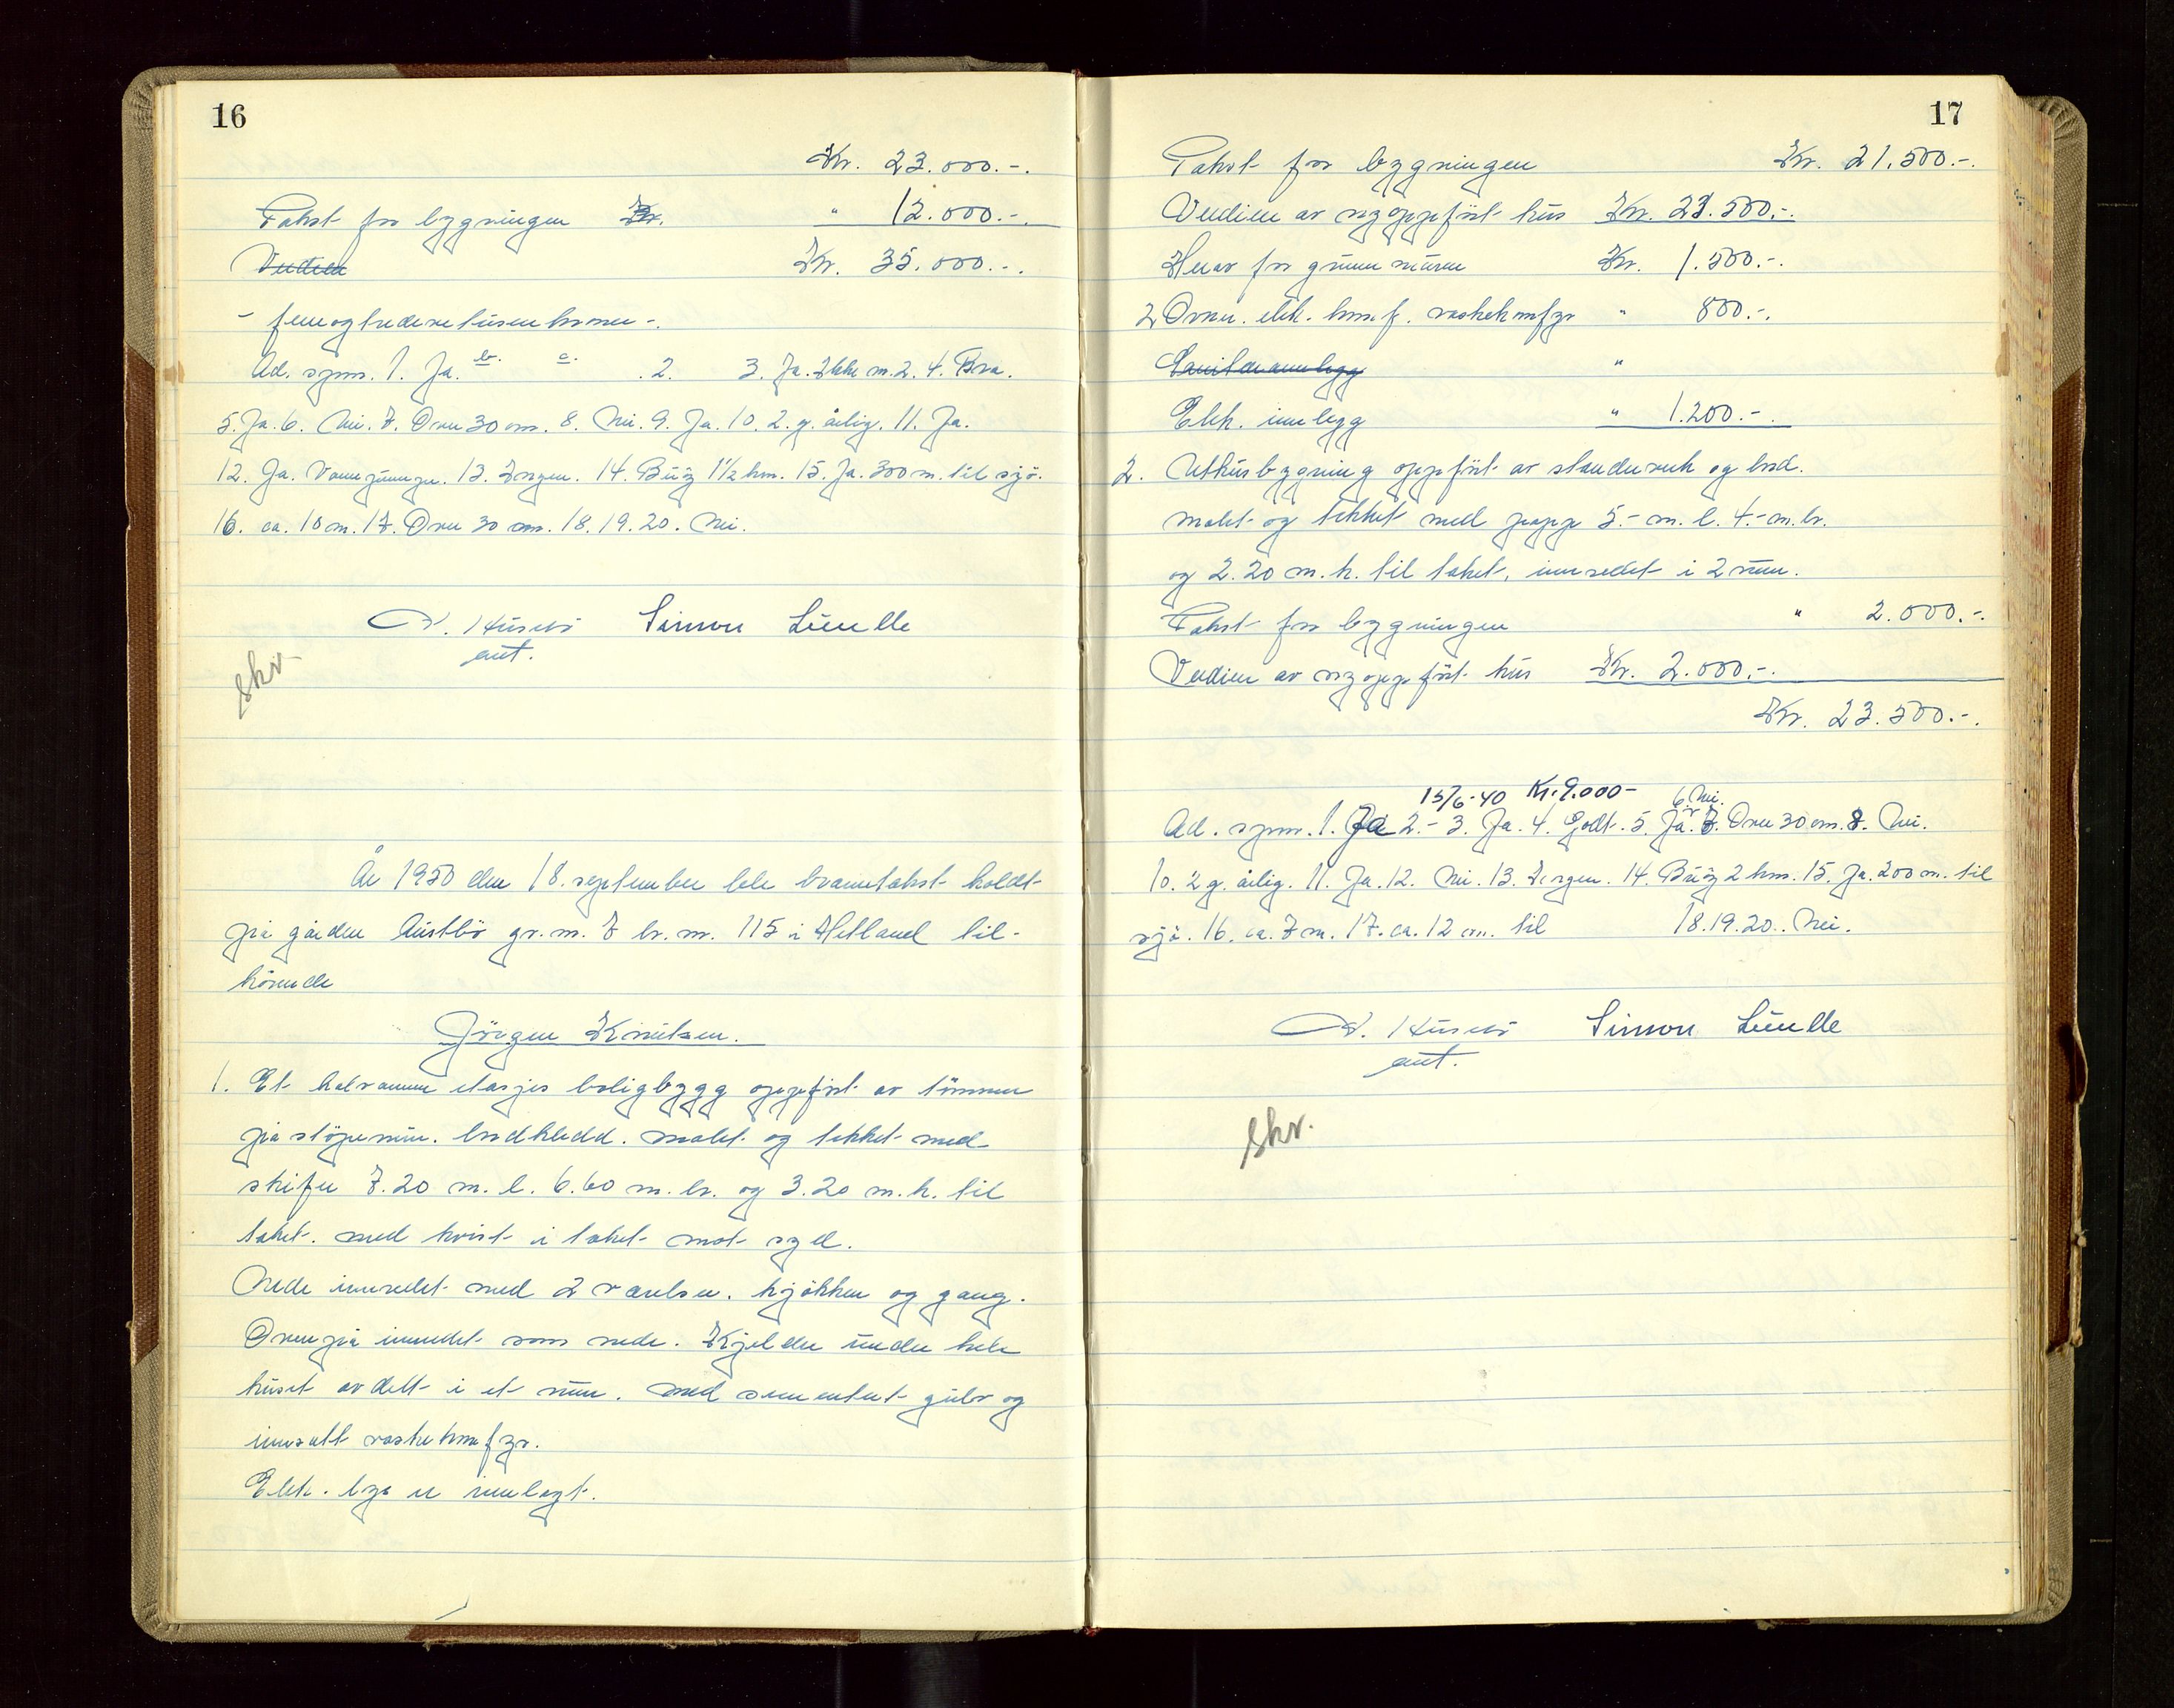 16
Kr. 23.000.-.
Takst for bygningen Kr. " 12.000.-.
Verdien Kr. 35.000.-.
- femogtredvetusenkroner -.
Ad. spm. 1. Ja. b. c. 2. 3. Ja. Ikke m. 2. 4. Bra.
5. Ja. 6. Nei. 7. Over 30 cm. 8. Nei. 9. Ja. 10. 2. g. årlig. 11. Ja.
12. Ja. Vannpumpe. 13. Ingen. 14. Buøy 1½ km. 15. Ja. 300 m. til sjø.
16. ca. 10 m. 17. Over 30 cm. 18. 19. 20. Nei.
Simon Lunde
aut.
skr.
År 1950 den 18. september ble branntakst holdt
på gården Austbø gr. nr. 7 br. nr. 115 i Hetland til-
hörende
Jörgen Knutsen.
1. Et halvannen etasjes boligbygg oppfört av tömmer
på stöpemur. bordkledd. malt og tekket med
skifer 7.20 m. l. 6.60 m. br. og 3.20 m. h. til
taket. med kvist i taket mot syd.
Nede innredet med 2 værelser. kjökken og gang.
Ovenpå innredet som nede. Kjelder under hele
huset avdelt i et rum. med sementert gulv og
innsatt vaskekomfyr.
Elek. lys er innlagt.
17
Takst for bygningen Kr. 21.500.-.
Verdien av nyoppfört hus Kr. 23.500.-.
Herav for grunnmuren Kr. 1.500.-.
2 Ovner. elek. komf. vaskekomfyr " 800.-.
Sanitæranlegg "
Elek. innlegg " 1.200.-.
2. Uthusbygning oppfört av stenderverk og bord.
malt og tekket med papp 5.- m. l. 4.- m. br.
og 2.20 m. h. til taket. innredet i 2 rum.
Takst for bygningen " 2.000.-.
Verdien av nyoppfört hus Kr. 2.000.-.
Kr. 23.500.-.
15/6-40 Kr. 9.000- 6. Nei.
Ad. spm. 1. Ja 2.- 3. Ja. 4. Godt. 5. Ja. 7. Over 30 cm. 8. Nei.
10. 2 g. årlig. 11. Ja. 12. Nei. 13. Ingen. 14. Buøy 2 km. 15. Ja. 200 m. til
sjö. 16. ca. 7 m. 17. ca. 12 cm. til 18. 19. 20. Nei.
Simon Lunde
aut.
skr.